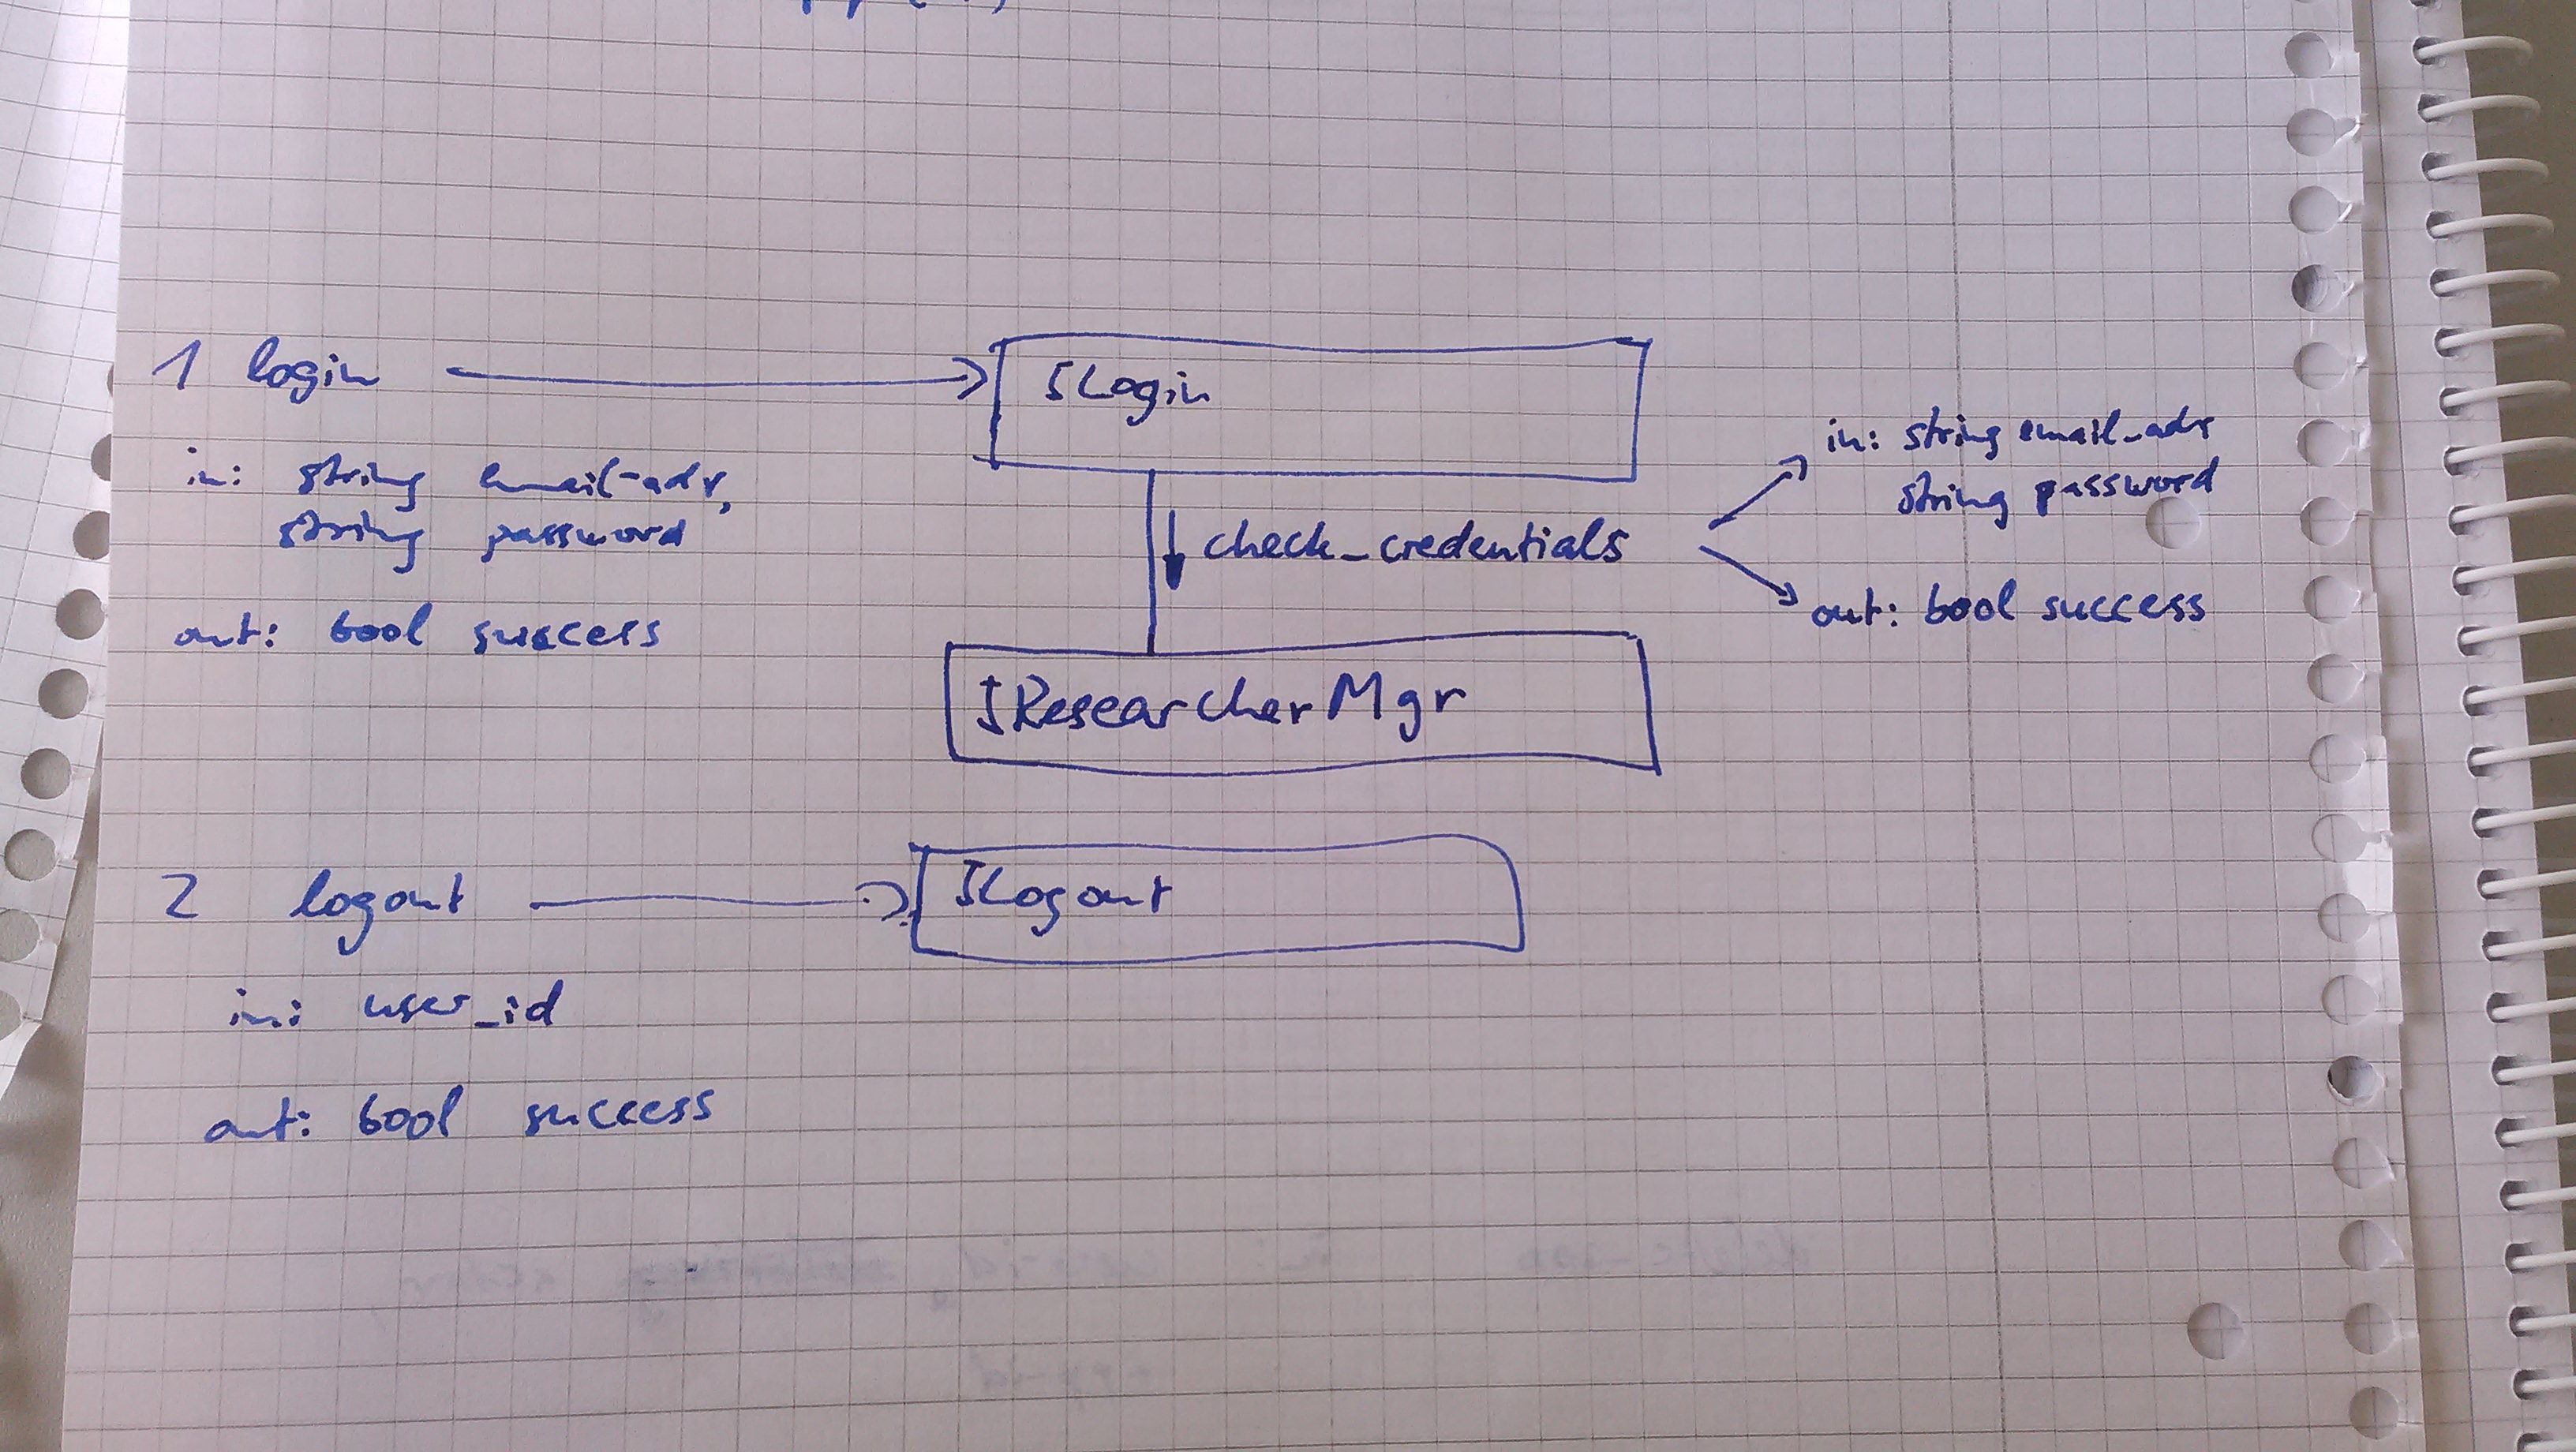 1 login
ILogin
in: string email-adr,
string password
out: bool success
check_credentials
in: string email_adr
string password
out: bool success
IResearcherMgr
2 logout
ILogout
in: user_id
out: bool success